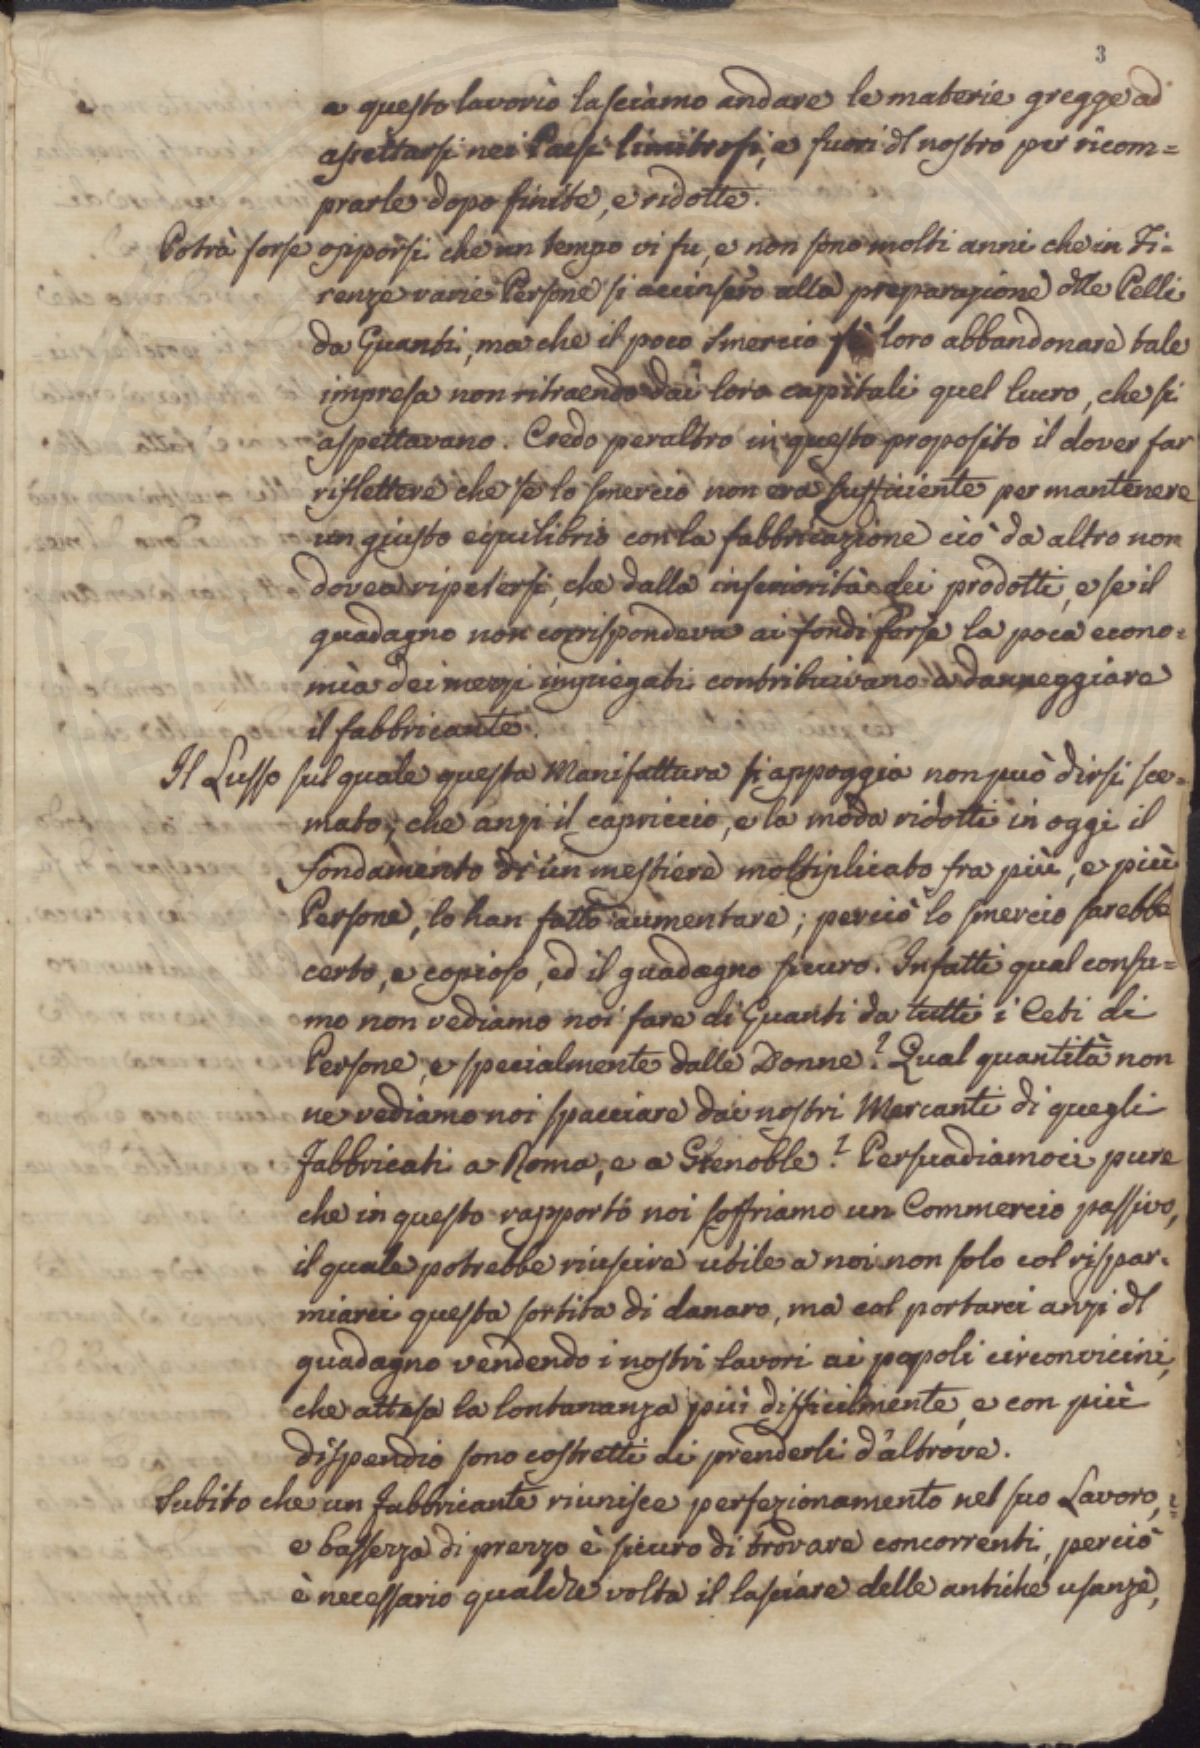 3
a questo lavorio lasciamo andare le materie gregge ad
assettarsi nei Paesi limitrofi, e fuori dl nostro per ricom=
prarle dopo finite, e ridotte.
Potrà forse opporsi che un tempo vi fu, e non sono molti anni che in Fi=
renze varie Persone si accinsero alla preparazione dlle Pelli
da Guanti, ma che il poco smercio fè loro abbandonare tale
impresa non ritraendo dai loro capitali quel lucro, che si
aspettavano. Credo peraltro in questo proposito il dover far
riflettere che se lo smercio non era sufficiente per mantenere
un giusto equilibrio con la fabbricazione ciò da altro non
dovea ripetersi, che dalla inferiorità dei prodotti, e se il
guadagno non corrispondeva ai fondi forse la poca econo=
mia dei mezzi impiegati contribuivano a danneggiare
il fabbricante.
Il Lusso sul quale questa Manifattura si appoggia non può dirsi sce=
mato, che anzi il capriccio, e la moda ridotti in oggi il
fondamento di un mestiere moltiplicato fra più, e più
Persone, lo han fatto aumentare; perciò lo smercio sarebbe
certo, e copioso, ed il guadagno sicuro. Infatti qual consu=
mo non vediamo noi fare di Guanti da tutti i Ceti di
Persone, e specialmente dalle Donne? Qual quantità non
ne vediamo noi spacciare dai nostri Mercanti di quegli
fabbricati a Roma, e a Grenoble? Persuadiamoci pure
che in questo rapporto noi soffriamo un Commercio passivo,
il quale potrebbe riuscire utile a noi non solo col rispar=
miarci questa sortita di danaro, ma col portarci anzi dl
guadagno vendendo i nostri lavori ai popoli circonvicini,
che attesa la lontananza più difficilmente, e con più
dispendio sono costretti di prenderli d'altrove.
Subito che un fabbricante riunisce perfezionamento nel suo Lavoro,
e bassezza di prezzo è sicuro di trovare concorrenti, perciò
è necessario qualche volta il lasciare delle antiche usanze,